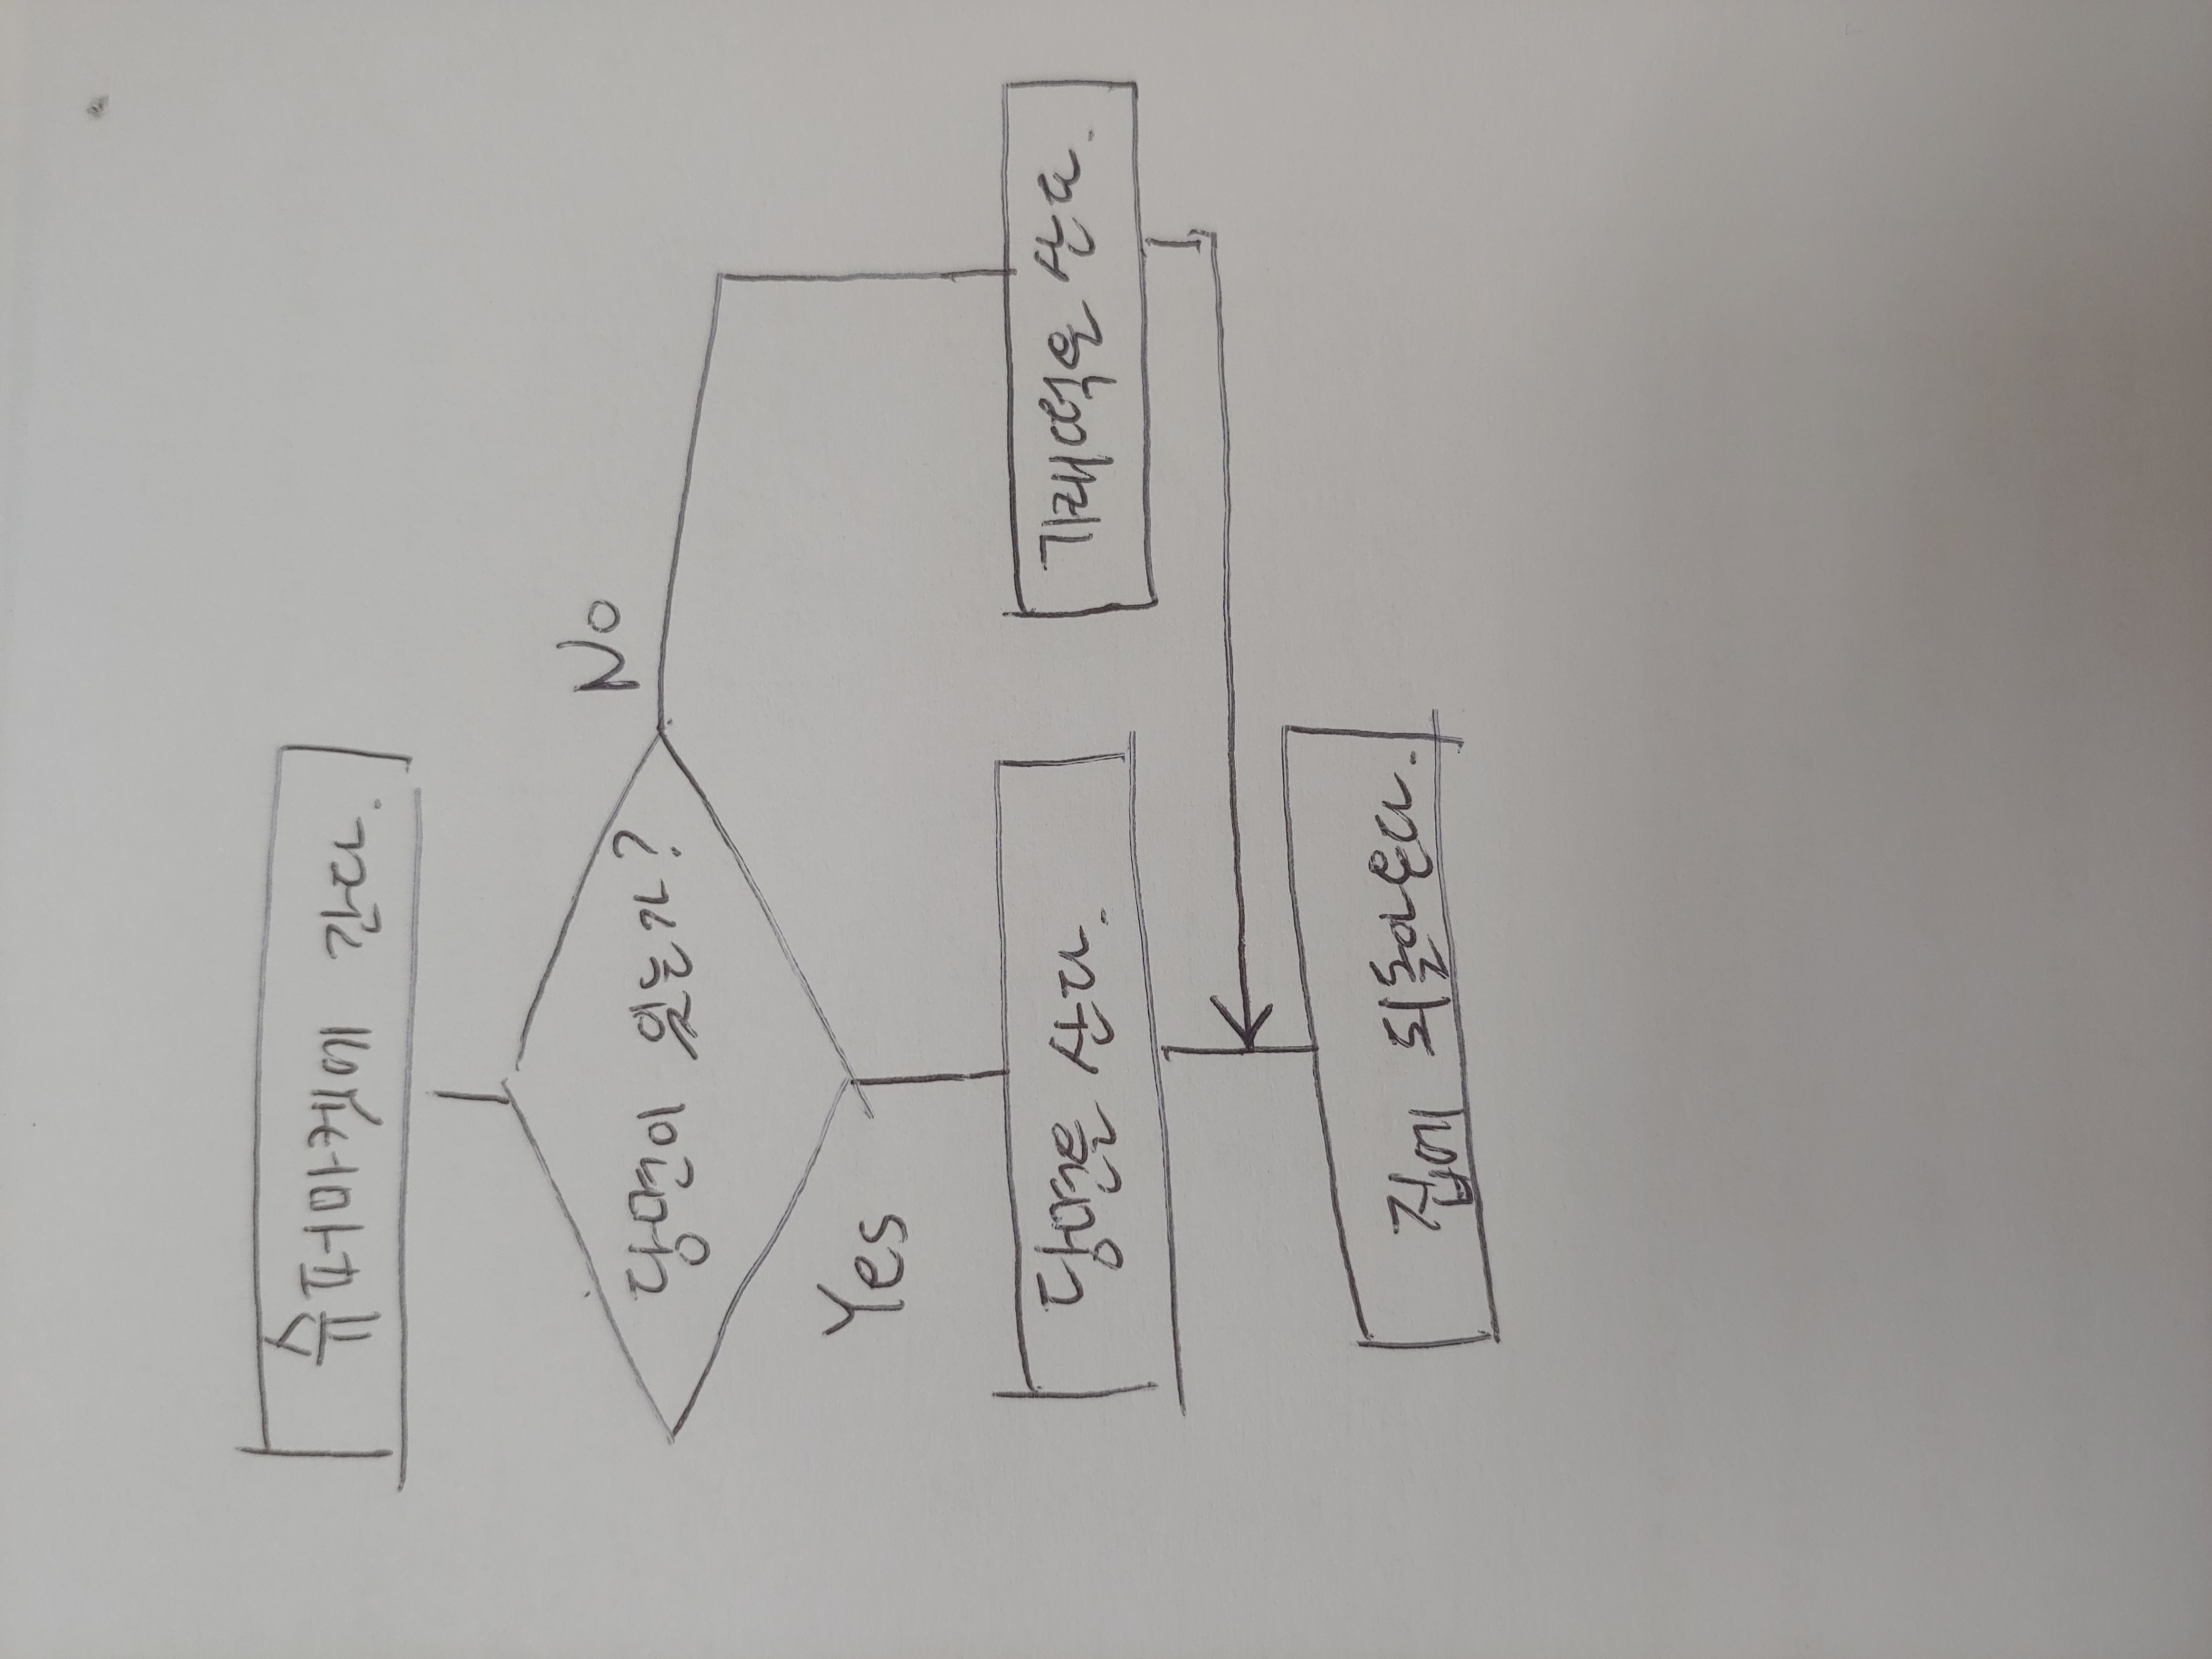 슈퍼마켓에 간다.
당면이 있는가?
No
Yes
당면을 산다.
가래떡을 산다.
집에 되돌아온다.